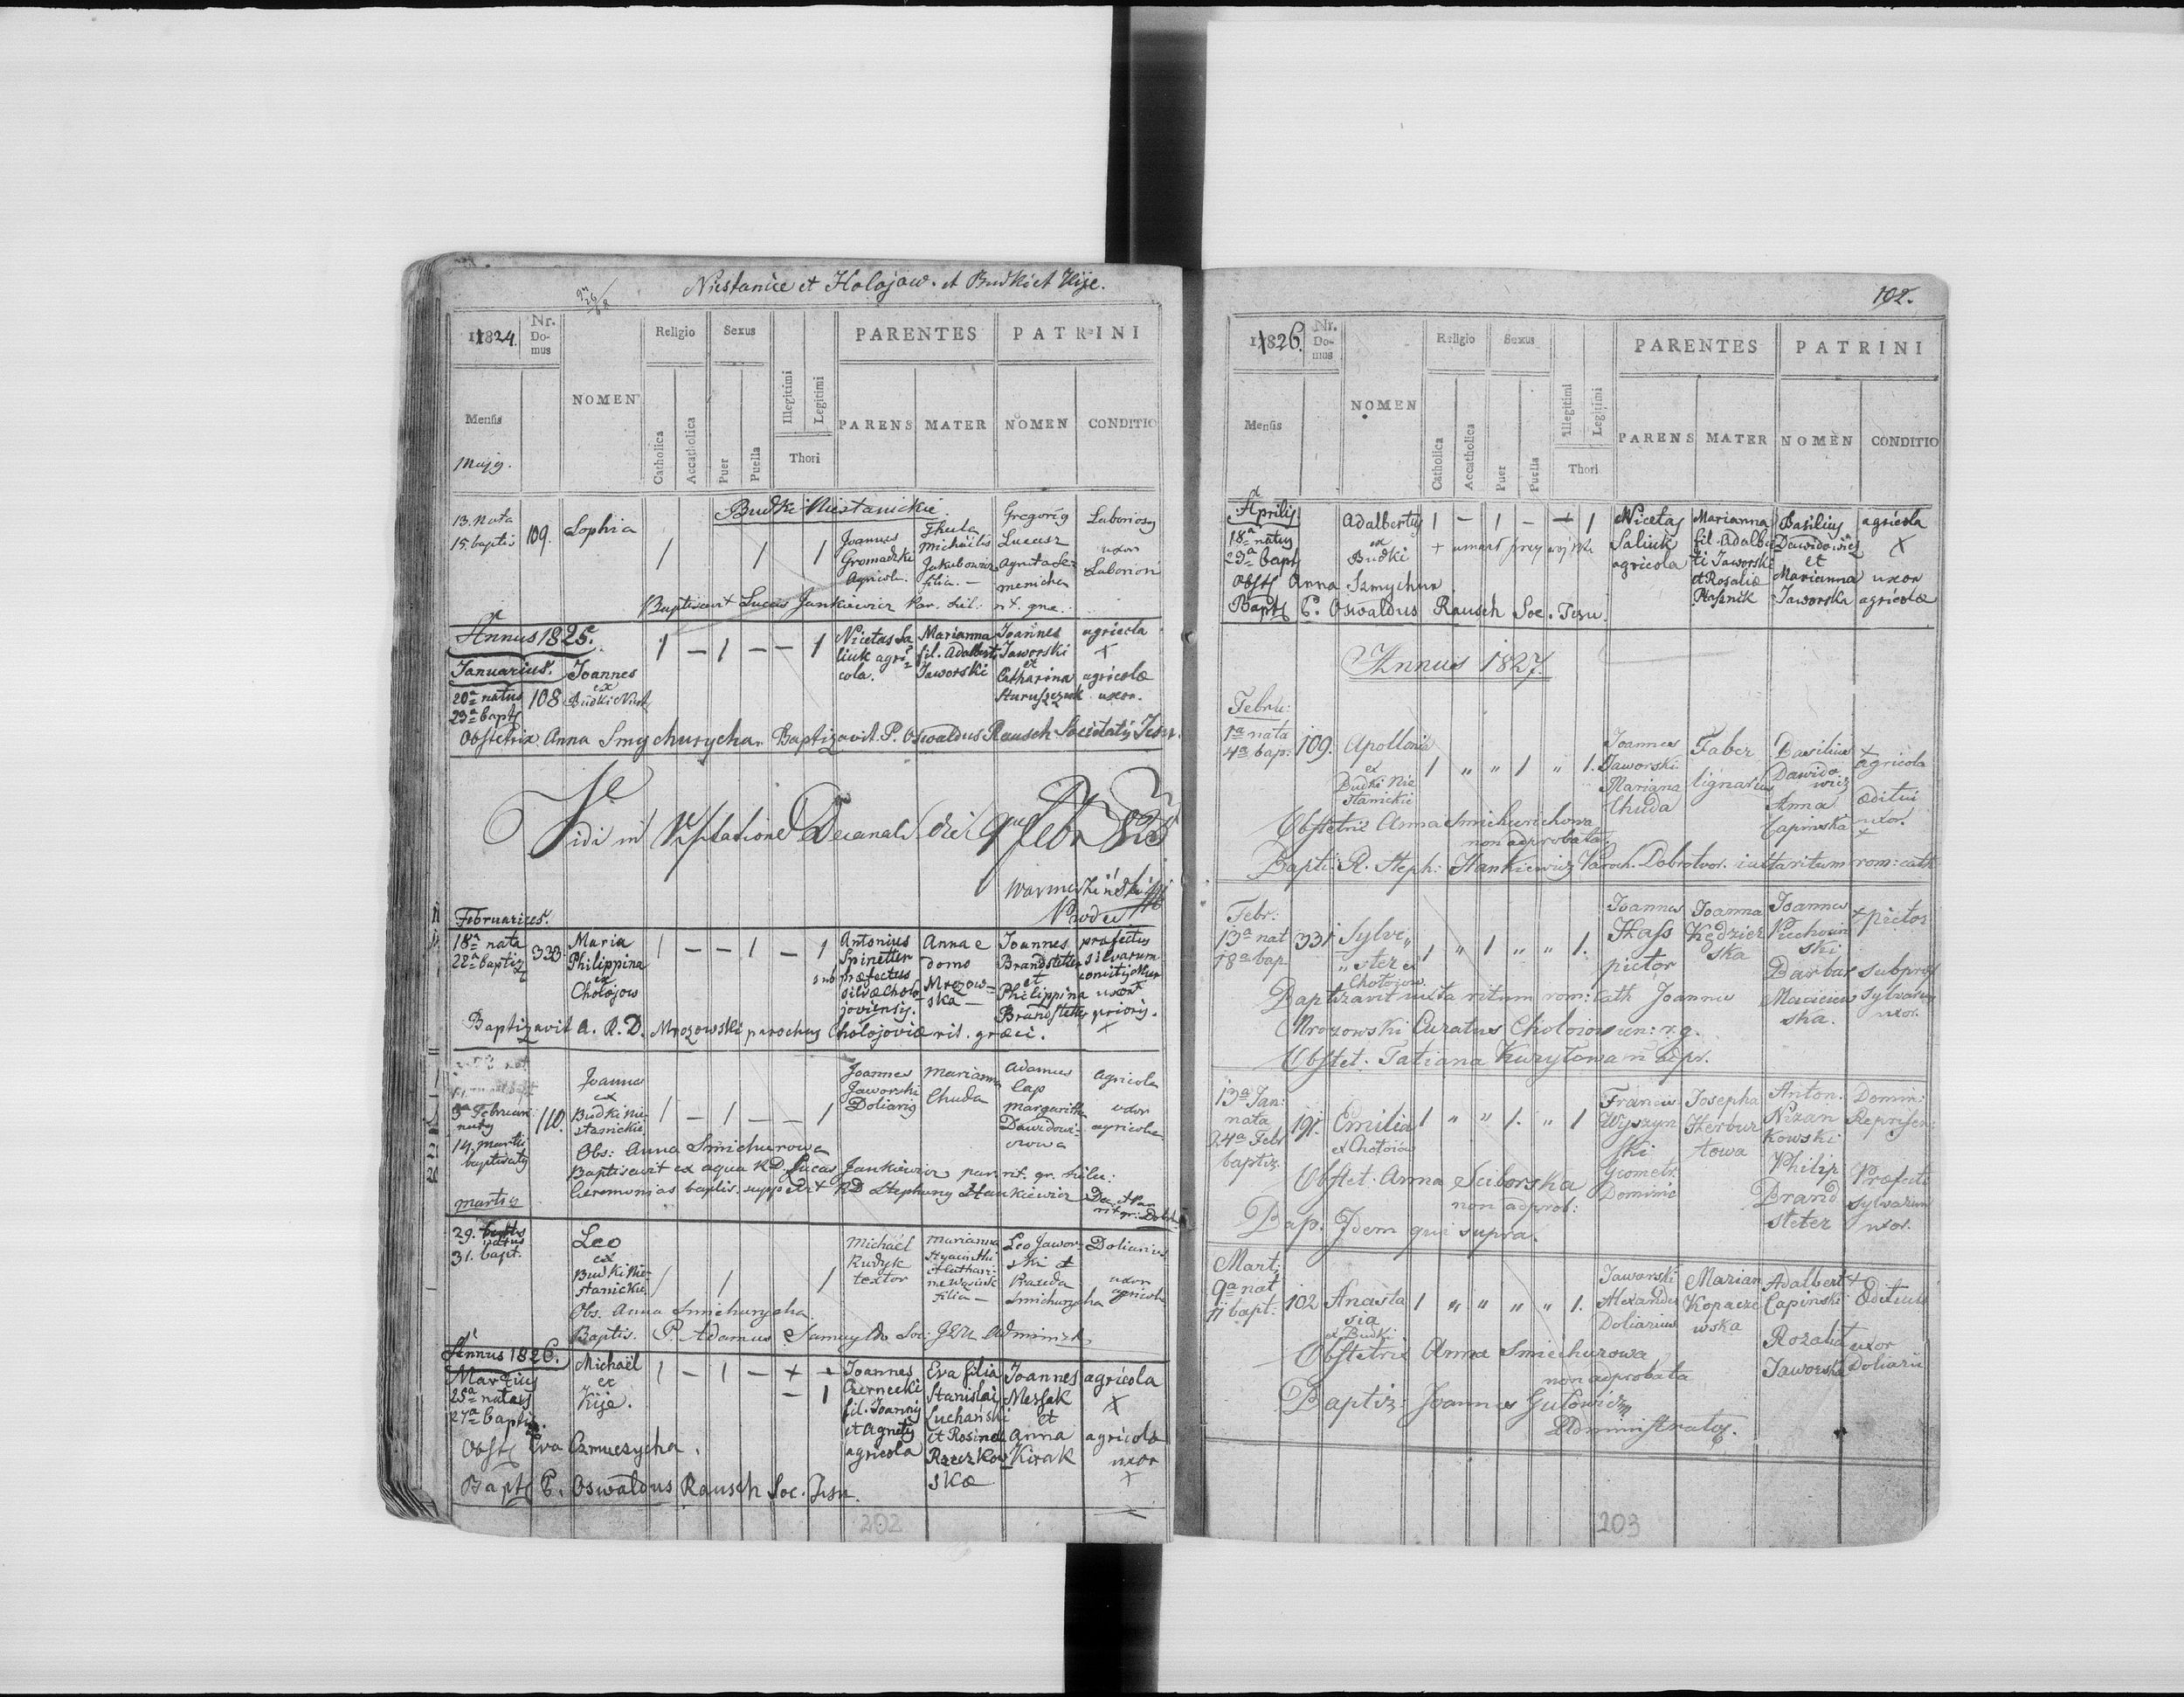 Niestanice et Holojow. et Budki et Kije.
1824.
Nr. Domus
NOMEN
Religio
Sexus
PARENTES
PATRINI
Mensis
Catholica
Accatholica
Puer
Puella
Illegitimi
Legitimi
Thori
PARENS
MATER
NOMEN
CONDITIO
Majg.
Budki Niestanickie.
13. Nata
15. baptis
109.
Sophia
1
1
1
Joannes
Gromadzki
Agricola.
Thecla
Michaëlis
Jakubowicz
filia. —
Gregorig
Lucusz
Laboriosg
uxor
Laboriosi
Baptisavit Lucas Jankiewicz Par.
Annus 1825.
Januarius.
20a natus
23a bapts
108
Joannes
ex
Budki Niest
1 — 1 — — 1
Nicetas Sa
liuk agri
cola.
Marianna
fil. Adalberti
Jaworski
Joannes
Jaworski
et
Catharina
Staruszczuk
agricola
x
agricolæ
uxor.
Obstetrix Anna Smychurycha. Baptizavit P. Oswaldus Rausch Societatis Jesu.
Vidi in Visitatione Decanali die 9na Febr 825
Februarius.
18a nata
22a baptiz
333
Maria
Philippina
ex
Cholojow
1 — — 1 — 1
Antonius
Spinetter
sub præfectus
silvæ Cholo
joviensis.
Anna e
domo
Mrozow
ska —
Joannes
Brandstetter
et
Philippina
Brandstetter
præfectus
silvarum
uxor
prioris.
x
Baptizavit A. R. D. Mrozowski parochus Cholojoviæ rit. græci.
3a Februar:
natus
14. martii
baptisatg
110.
Joannes
ex
Budki Nie
stanickie
1 — 1 — — 1
Joannes
Jaworski
Doliarig
Marianna
Chuda
Adamus
Cap
Margaritha
Dawidowi
czowa
Agricola
uxor
agricolæ
Obs: Anna Smichurowa
Baptisavit ex aqua RD. Lucas Jankiewicz par. rit. gr.
Ceremonias baptis. supplevit RD Stephang Hankiewicz
martis
29. natus
31. bapt.
Leo
ex
Budki Nie
stanickie
1
1
1
Michaël
Rudyk
textor
Marianna
Hyacinthi
et Cathari
næ Wasiuk
filia —
Leo Jawor
ski et
Smichurycha
Doliarius.
uxor
agricolæ
Obs. Anna Smichurycha
Baptis. P. Adamus Samayło Soc: Jesu Administr.
Annus 1826.
Martius
25a natus
27a baptiz.
Michaël
ex
Kije.
1 — 1 — +
— 1
Joannes
Czernecki
fil. Joannis
et Agnetis
agricola
Eva filia
Stanislai
Luchański
et Rosinæ
Rzeczkow
skæ
Joannes
Messak
et
Anna
Kirak
agricola
x
agricolæ
uxor
+
Obsts Eva Czmuczycha.
Bapts P. Oswaldus Rausch Soc. Jesu.
202
102.
1826.
Nr. Domus
NOMEN
Religio
Sexus
PARENTES
PATRINI
Mensis
Catholica
Accatholica
Puer
Puella
Illegitimi
Legitimi
Thori
PARENS
MATER
NOMEN
CONDITIO
Aprilis
18a natus
23a bapts
Adalbertus
ex
Budki
1 — 1 — — 1
+ umarł przy wojsku
Nicetas
Saliuk
agricola
Marianna
fil. Adalber
ti Jaworski
et Rosaliæ
Ptasznik
Basilius
Dawidowicz
et
Marianna
Jaworska
agricola
x
uxor
agricolæ
Obsts Anna Szmychur
Bapts P. Oswaldus Rausch Soc. Jesu.
Annus 1827.
Febru:
1a nata
4a bap.
109.
Apollonia
ex
Budki Nie
stanickie
1 „ „ 1 „ 1.
Joannes
Jaworski
Mariana
Chuda
Faber
lignarius
Basilius
Dawido
wicz
Anna
Capinska
+
agricola
æditui
uxor.
+
Obstetrix Anna Smichurichowa
non adprobata.
Bapti: R. Steph: Hankiewicz Paroch. Dobrotvor. iuxta ritum rom: cath
Febr:
13a nat
18a bap.
331
Sylve„
„ster ex
Chotojow
1 „ 1 „ „ 1.
Joannes
Hass
pictor
Joanna
Kędzier
ska
Joannes
Piechowin
ski
Barbar
Maciciew
ska.
+ pictor
subpræf
sylvarum
uxor.
Baptizavit iuxta ritum rom: cath Joannes
Mrozowski Curatus Chotoiow un: r. g.
Obstet. Tatiana Kuryłowa n adpr.
13a Jan:
nata
24a Febr
baptiz.
191.
Emilia
ex Chotoiow
1 „ „ 1. „ 1
Francis
Wyszyn
ski
Geometr
Dominic
Josepha
Herbur
towa
Anton.
Nizan
kowski
Philip
Brand
steter
Domin:
Præfecti
sylvarum
uxor.
Obstet: Anna Sciborska
non adprob:
Bap. Idem qui supra.
Mart:
9a nat
11 bapt.
102
Anasta
sia
ex Budki
1 „ „ „ „ 1.
Jaworski
Alexander
Doliarius
Marian
Kopacze
wska
Adalbert
Capinski
Rozalia
Jaworska
+
Oedituus
uxor
Doliarii
Obstetrix Anna Smichurowa
non adprobata
Baptiz: Joannes Gutowicz
Administrator.
203